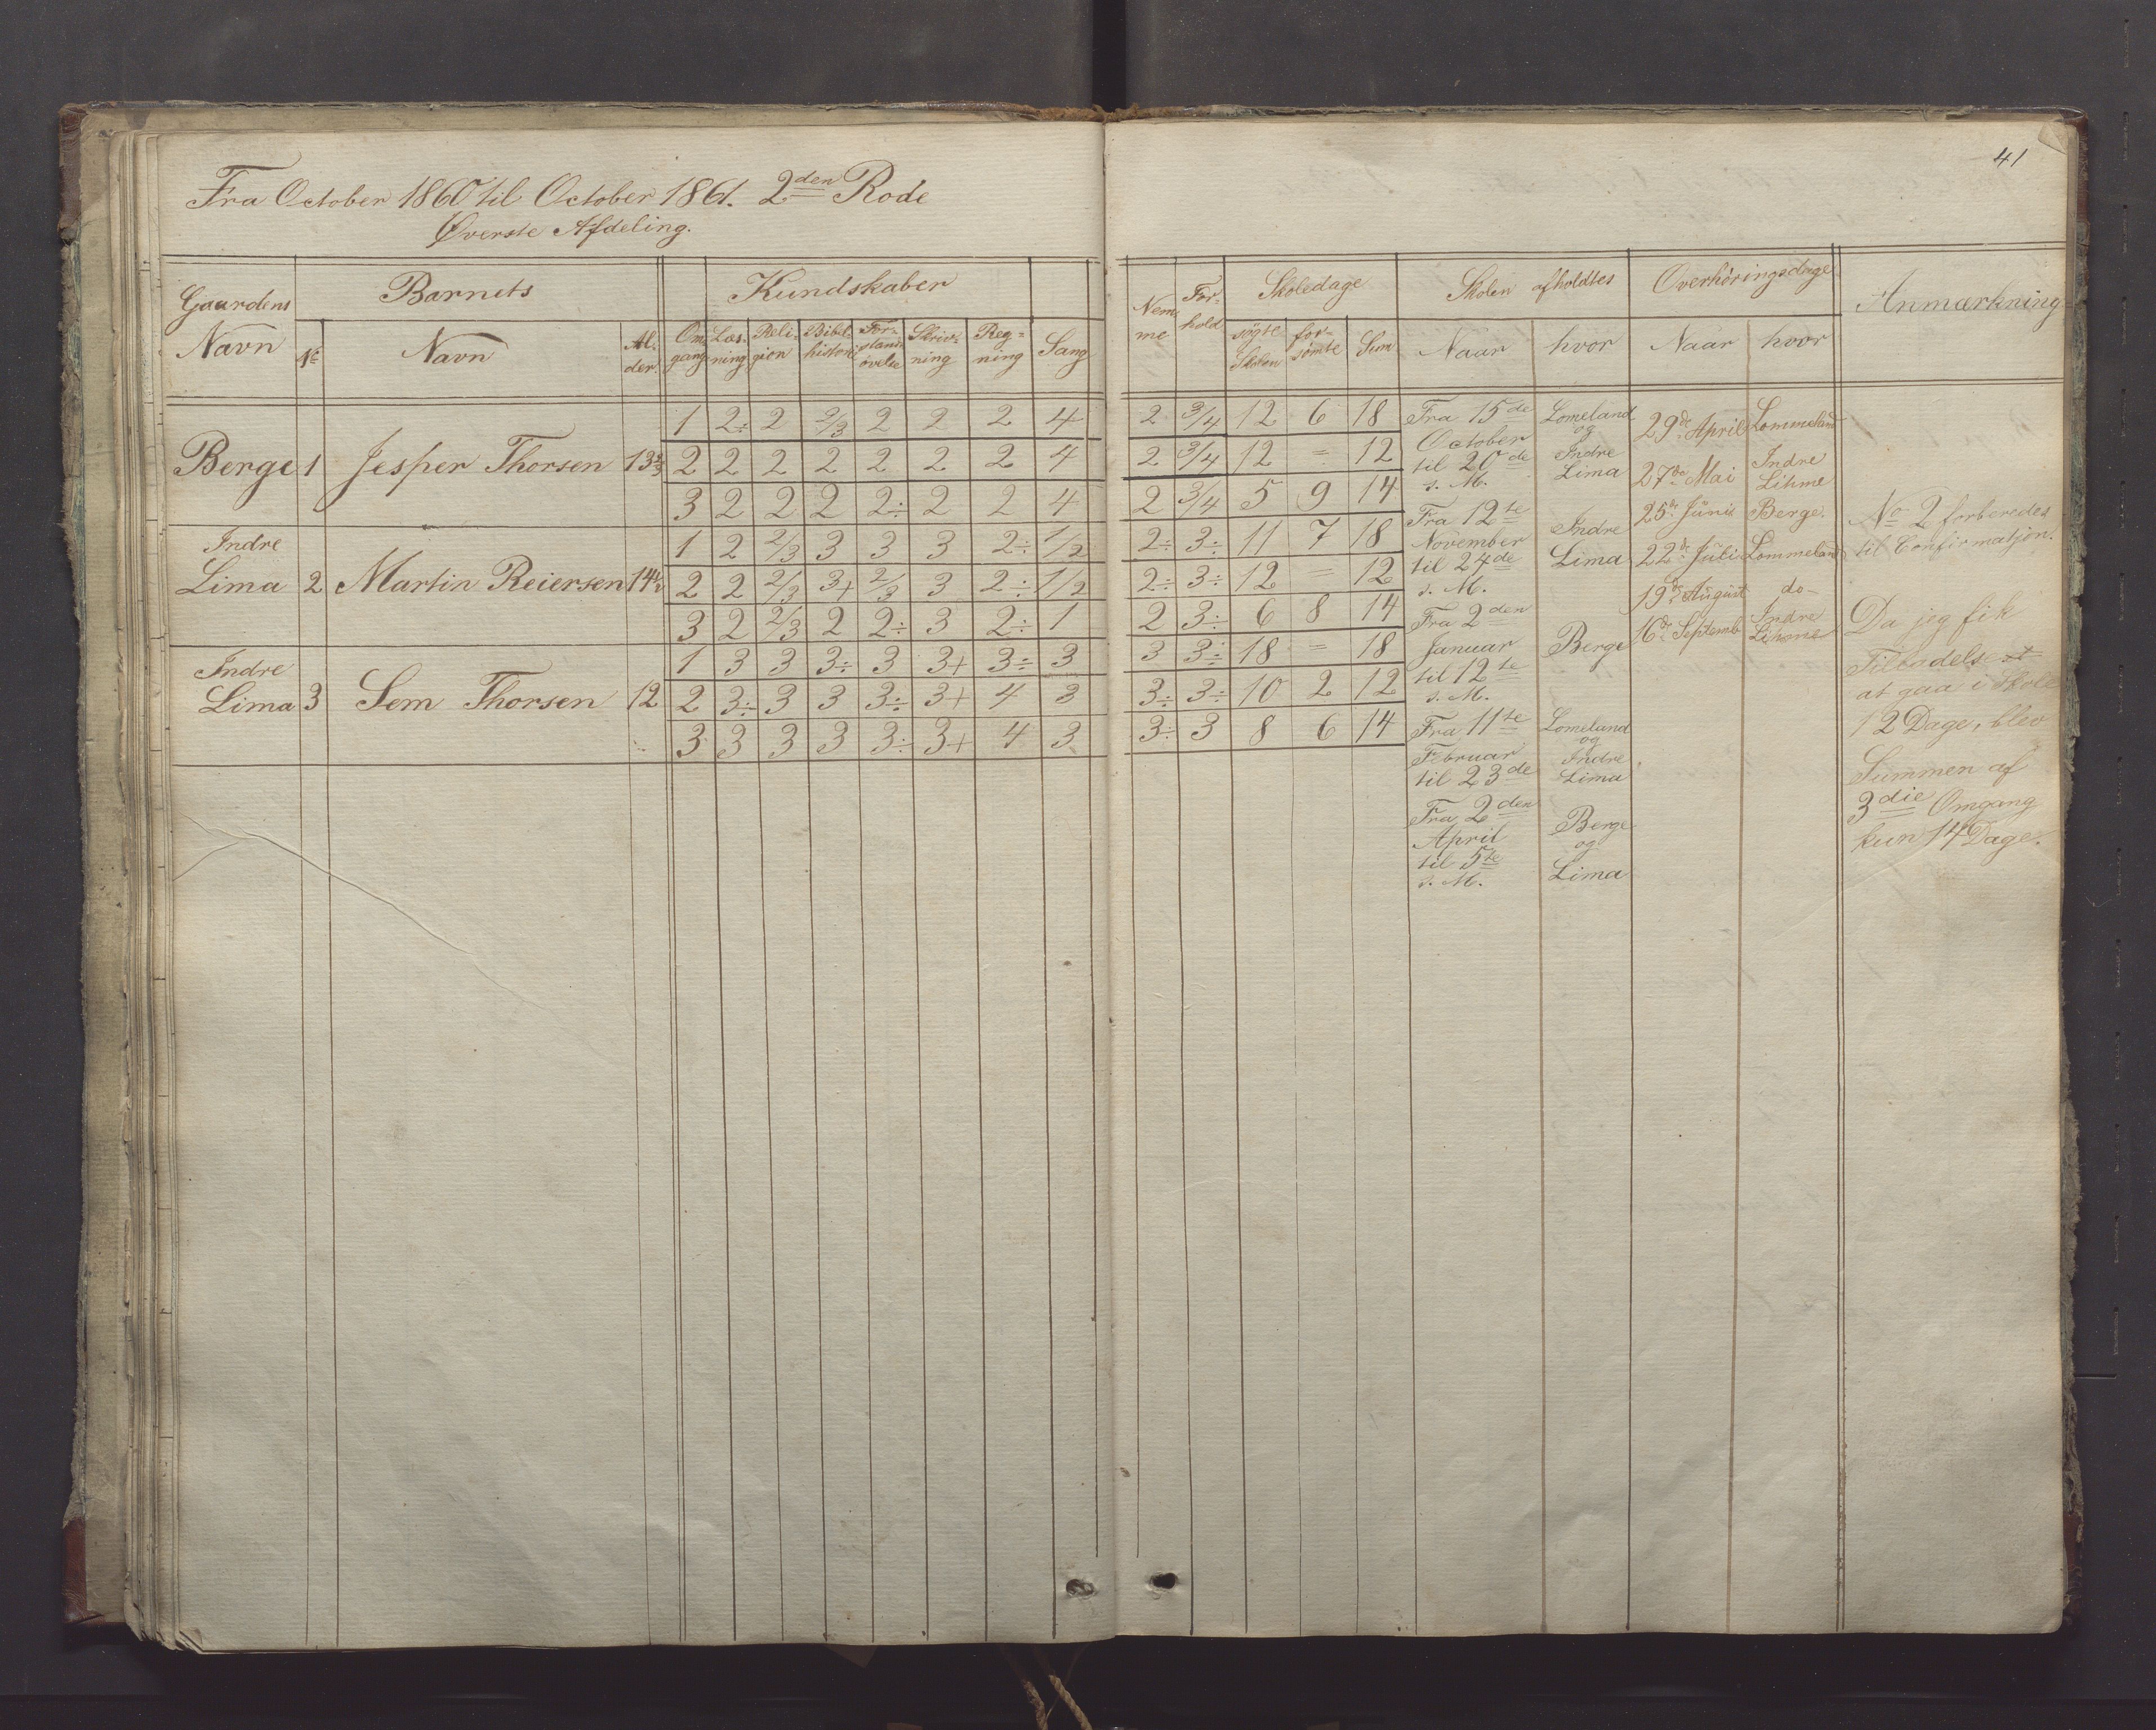 41
Fra October 1860 til October 1861. 2den Rode
Øverste Afdeling.
Gaardens Navn | Barnets | Kundskaber
No | Navn | Al- der. | Om gang | Læs- ning | Reli- gion | Bibel histori | For- stands övelse | Skriv- ning | Reg- ning | Sang
Berge 1 Jesper Thorsen 13
1 2÷ 2 2/3 2 2 2 4
2 2 2 2 2 2 2 4
3 2 2 2 2÷ 2 2 4
Indre Lima 2 Martin Reiersen 14½
1 2 2/3 3 3 3 2÷ 1/2
2 2 2/3 3+ 2/3 3 2÷ 1/2
3 2 2/3 2 2÷ 3 2÷ 1
Indre Lima 3 Sem Thorsen 12
1 3 3 3÷ 3 3+ 3÷ 3
2 3÷ 3 3 3÷ 3+ 4 3
3 3 3 3 3÷ 3+ 4 3
Nem me | For- hold | Skoledage | Skolen afholdtes | Overhöringsdage | Anmærkning
sögte Skolen | for- sömte | Sum | Naar | hvor | Naar | hvor
2 3/4 12 6 18
2 3/4 12 = 12
2 3/4 5 9 14
2÷ 3÷ 11 7 18
2÷ 3÷ 12 = 12
2 3÷ 6 8 14
3 3÷ 18 = 18
3÷ 3÷ 10 2 12
3÷ 3 8 6 14
Fra 15de
October
til 20de
s. M.
Fra 12te
November
til 24de
s. M.
Fra 2den
Januar
til 12te
s. M.
Fra 11te
Februar
til 23de
Fra 2den
April
til 5te
s. M.
Lomeland
og
Indre
Lima
Indre
Lima
Berge
Lomeland
og
Indre
Lima
Berge
og
Lima
29de April Lommeland
27de Mai Indre Lihme
25de Juni Berge.
22de Juli Lommeland
19de August do-
16de Septemb Indre Lihme
No 2 forberedes
til Confirmatjon.
Da jeg fik
Tilladelse
at gaa i Skole
12 Dage, blev
Summen af
3die Omgang
kun 14 Dage.